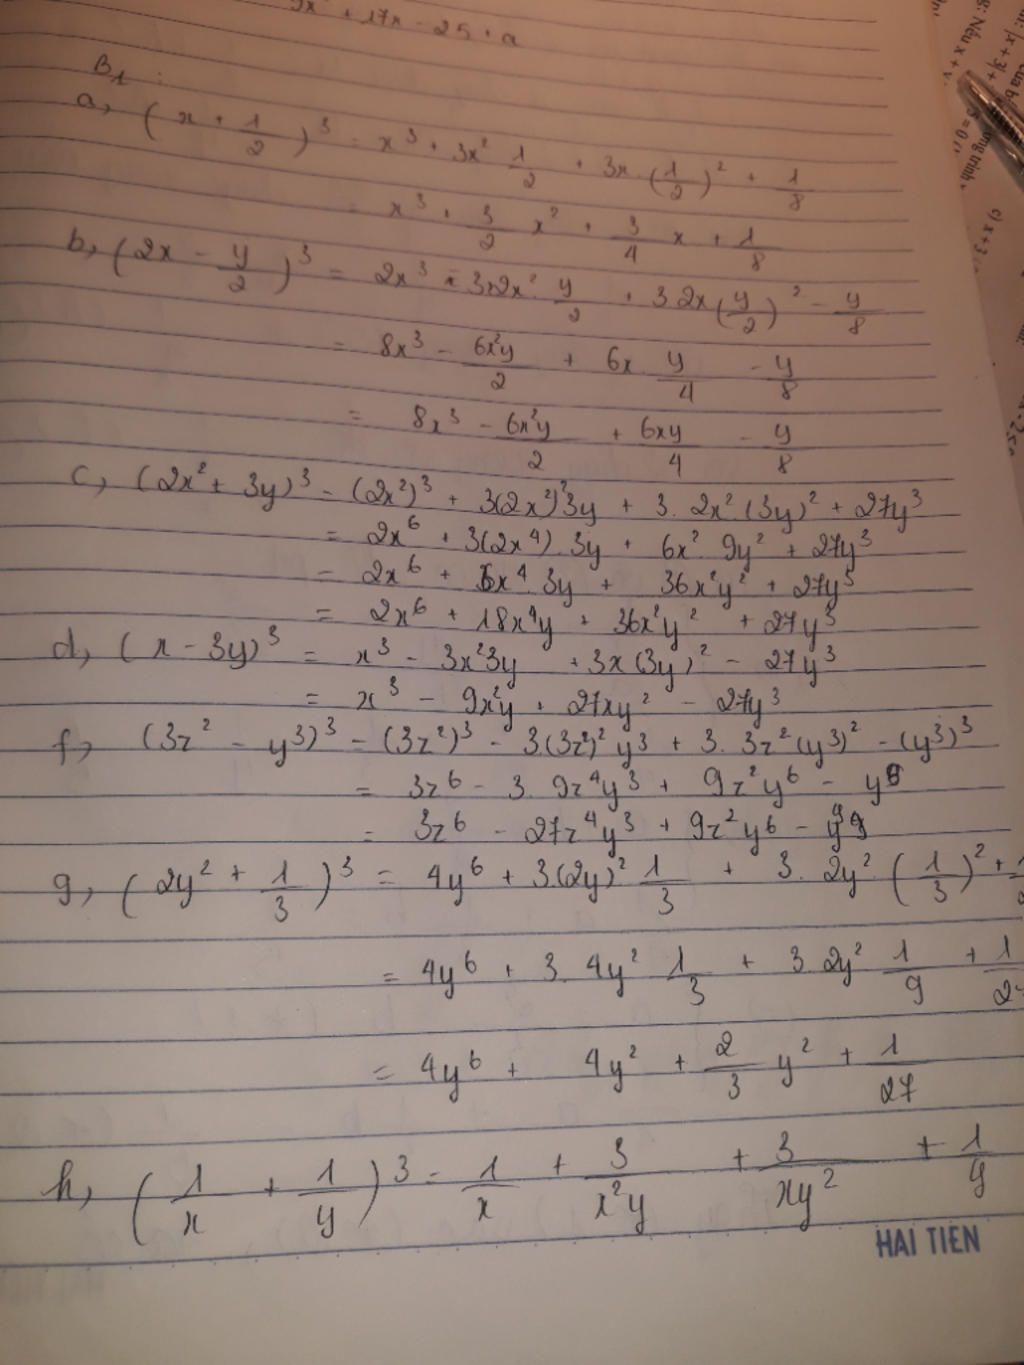 9x² + 17x - 25 + a
B1 :
a, (x + 1/2)³ = x³ + 3x² 1/2 + 3x.(1/2)² + 1/8
= x³ + 3/2 x² + 3/4 x + 1/8
b, (2x - y/2)³ = 2x³ - 3.2x². y/2 + 3.2x(y/2)² - y/8
= 8x³ - 6x²y/2 + 6x. y/4 - y/8
= 8x³ - 6x²y/2 + 6xy/4 - y/8
c, (2x² + 3y)³ = (2x²)³ + 3(2x²)²3y + 3. 2x².(3y)² + 27y³
= 2x⁶ + 3(2x⁴). 3y + 6x². 9y² + 27y³
= 2x⁶ + 6x⁴. 3y + 36x²y² + 27y³
= 2x⁶ + 18x⁴y + 36x²y² + 27y³
d, (x - 3y)³ = x³ - 3x²3y + 3x(3y)² - 27y³
= x³ - 9x²y + 27xy² - 27y³
f, (3x² - y³)³ = (3x²)³ - 3.(3x²)² y³ + 3. 3x²(y³)² - (y³)³
= 3x⁶ - 3. 9x⁴y³ + 9x²y⁶ - y⁹
= 3x⁶ - 27x⁴y³ + 9x²y⁶ - y⁹
g, (2y² + 1/3)³ = 4y⁶ + 3.(2y)² 1/3 + 3. 2y².(1/3)² +
= 4y⁶ + 3. 4y² 1/3 + 3. 2y² 1/9 + 1/27
= 4y⁶ + 4y² + 2/3 y² + 1/27
h, (1/x + 1/y)³ = 1/x + 3/x²y + 3/xy² + 1/y
HẢI TIẾN